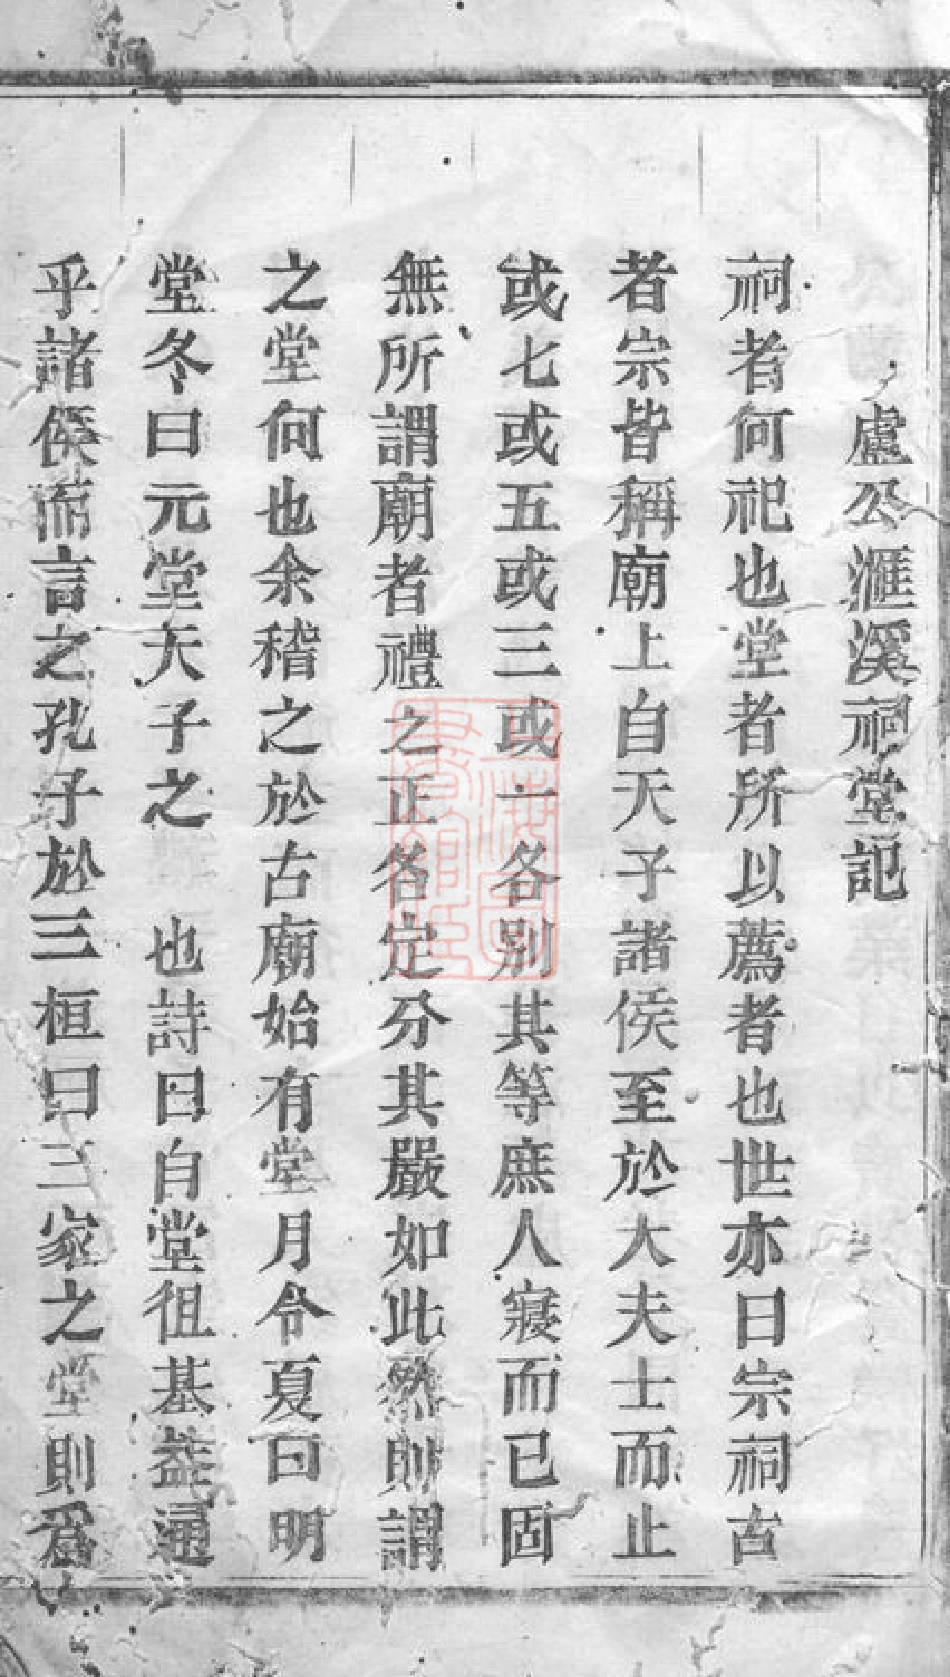 盧公滙溪祠堂記
祠者何祀也堂者所以薦者也世亦曰宗祠古
者宗皆稱廟上自天子諸侯至於大夫士而止
或七或五或三或一各别其等庶人寢而已固
無所謂廟者禮之正各定分其嚴如此然則謂
之堂何也余稽之於古廟始有堂月令夏曰明
堂冬曰元堂天子之 也詩曰自堂徂基葢通
乎諸侯而言之孔子於三桓曰三家之堂則爲
上海圖
書館藏